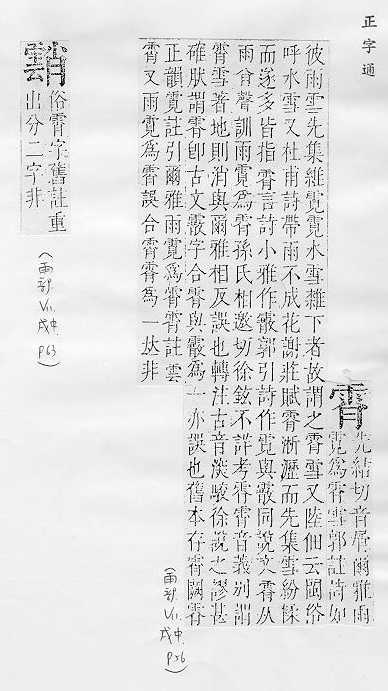 正字通
霄
先結切音屑爾雅雨
霓爲霄雪郭註詩如
彼雨雪先集維霓霓水雪雜下者故謂之霄雪又陸佃云閩俗
呼水雪又杜甫詩帶雨不成花謝莊賦霄淅瀝而先集雪紛糅
而遂多皆指霄言詩小雅作霰郭引詩作霓與霰同說文霄从
雨肖聲訓雨霓爲霄孫氏相邀切徐鉉不詳考霄霄音義別謂
霄雪著地則消與爾雅相反誤也轉注古音潠駿徐說之謬甚
確肰謂霄卽古文霰字合霄與霰爲一亦誤也舊本存霄闕霄
正韻霓註引爾雅雨霓爲霄霄註雲
霄又雨霓爲霄誤合霄霄爲一𠀤非
(雨部 Vii. 戌中. p56)
俗霄字舊註重
出分二字非
(雨部 Vii. 戌中. p63)